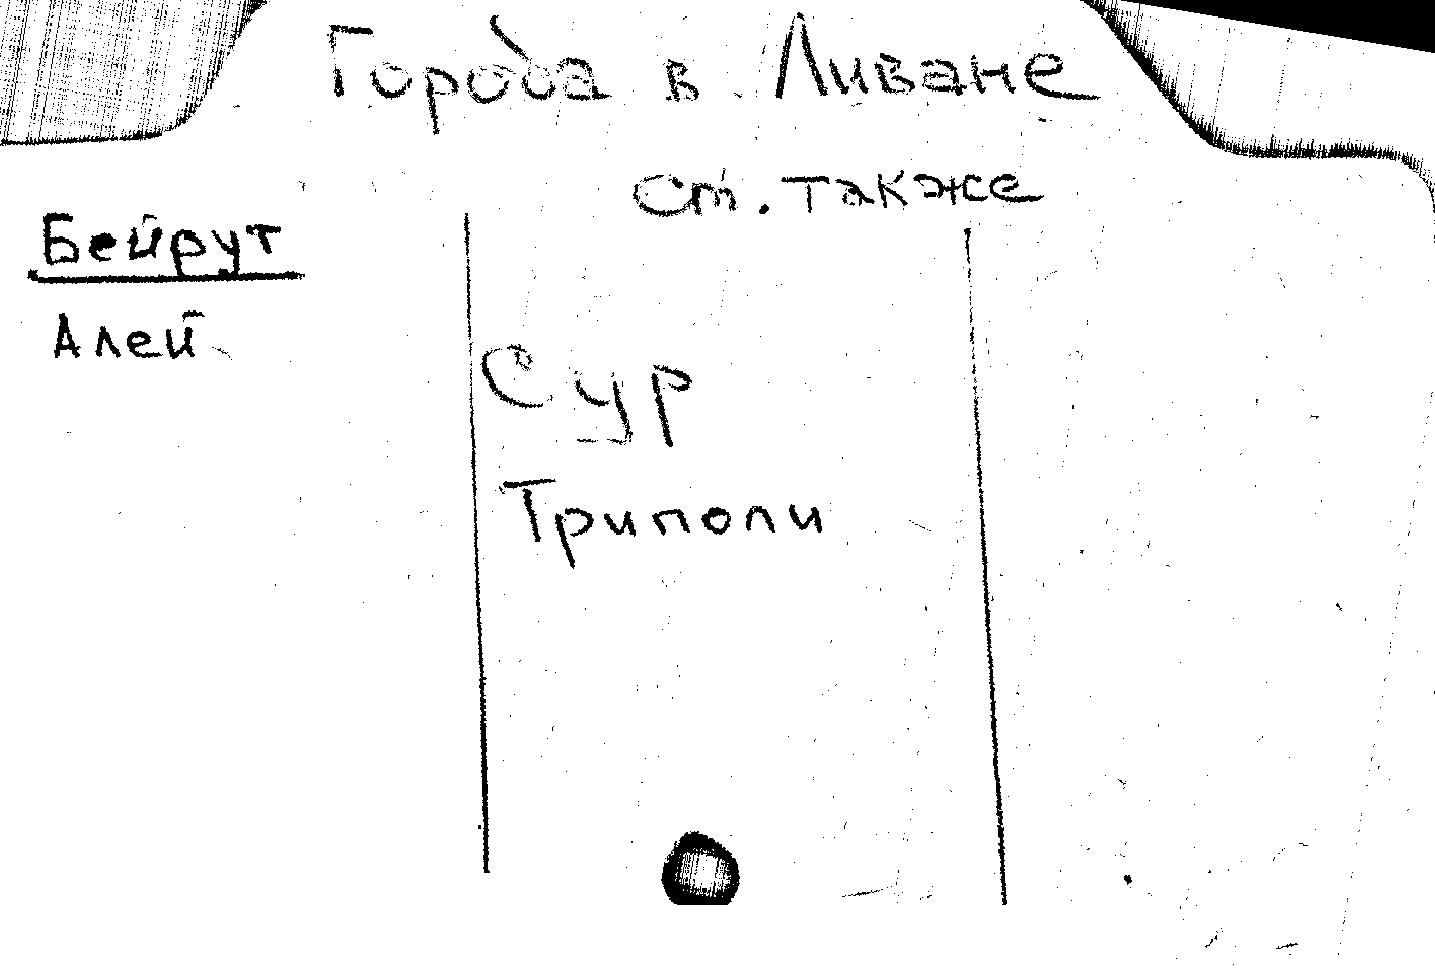 Города в Ливане
см. также
Бейрут
Алей
Сур
Триполи